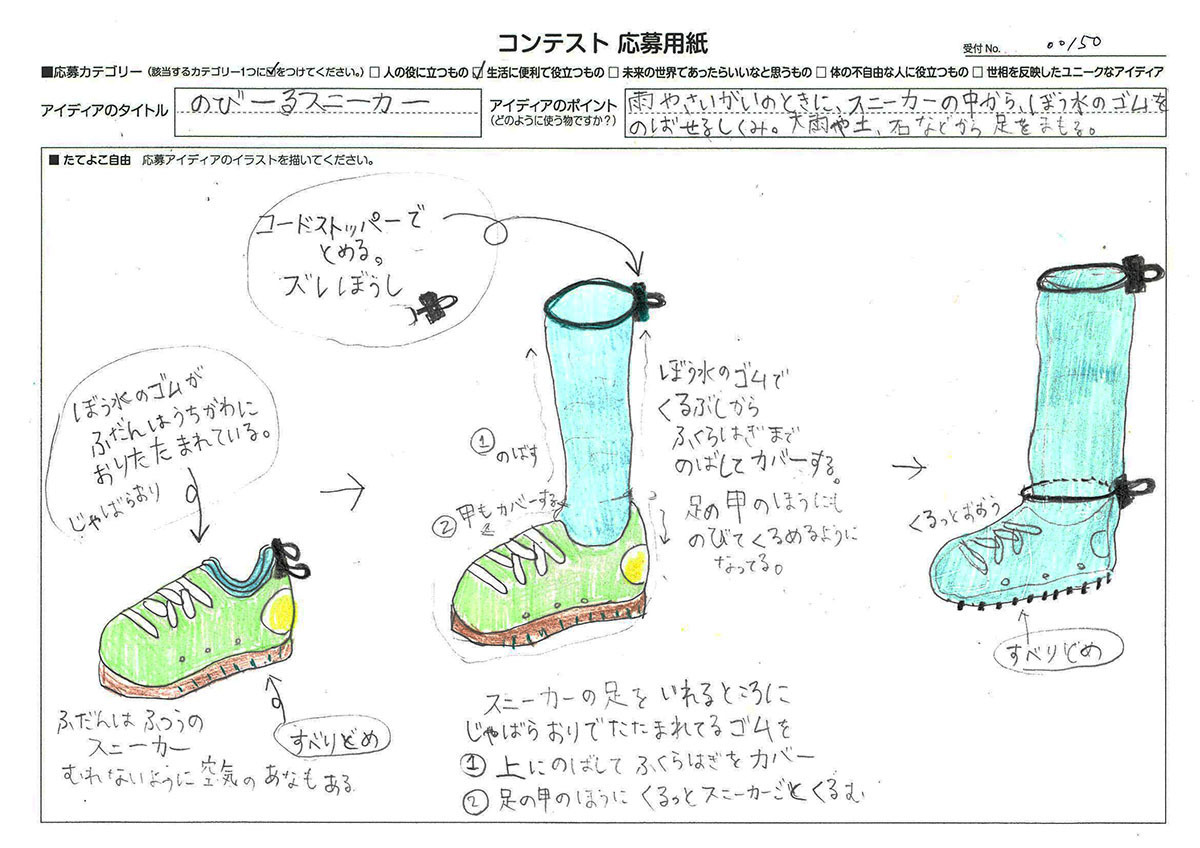 コンテスト 応募用紙
受付 No. 00150
■応募カテゴリー（該当するカテゴリー1つに☑をつけてください。）□ 人の役に立つもの ☑ 生活に便利で役立つもの □ 未来の世界であったらいいなと思うもの □ 体の不自由な人に役立つもの □ 世相を反映したユニークなアイディア
アイディアのタイトル
のびーるスニーカー
アイディアのポイント
（どのように使う物ですか？）
雨やさいがいのときに、スニーカーの中から、ぼう水のゴムを
のばせるしくみ。大雨や土、石などから足をまもる。
■ たてよこ自由　応募アイディアのイラストを描いてください。
コードストッパーで
とめる。
ズレぼうし
ぼう水のゴムが
ふだんはうちがわに
おりたたまれている。
じゃばらおり
すべりどめ
ふだんは ふつうの
スニーカー
むれないように空気のあなもある
①のばす
②甲もカバーする
ぼう水のゴムで
くるぶしから
ふくらはぎまで
のばしてカバーする。
足の甲のほうにも
のびてくるめるように
なってる。
くるっとおおう
すべりどめ
スニーカーの足をいれるところに
じゃばらおりでたたまれてるゴムを
① 上にのばして ふくらはぎをカバー
② 足の甲のほうに くるっとスニーカーごとくるむ